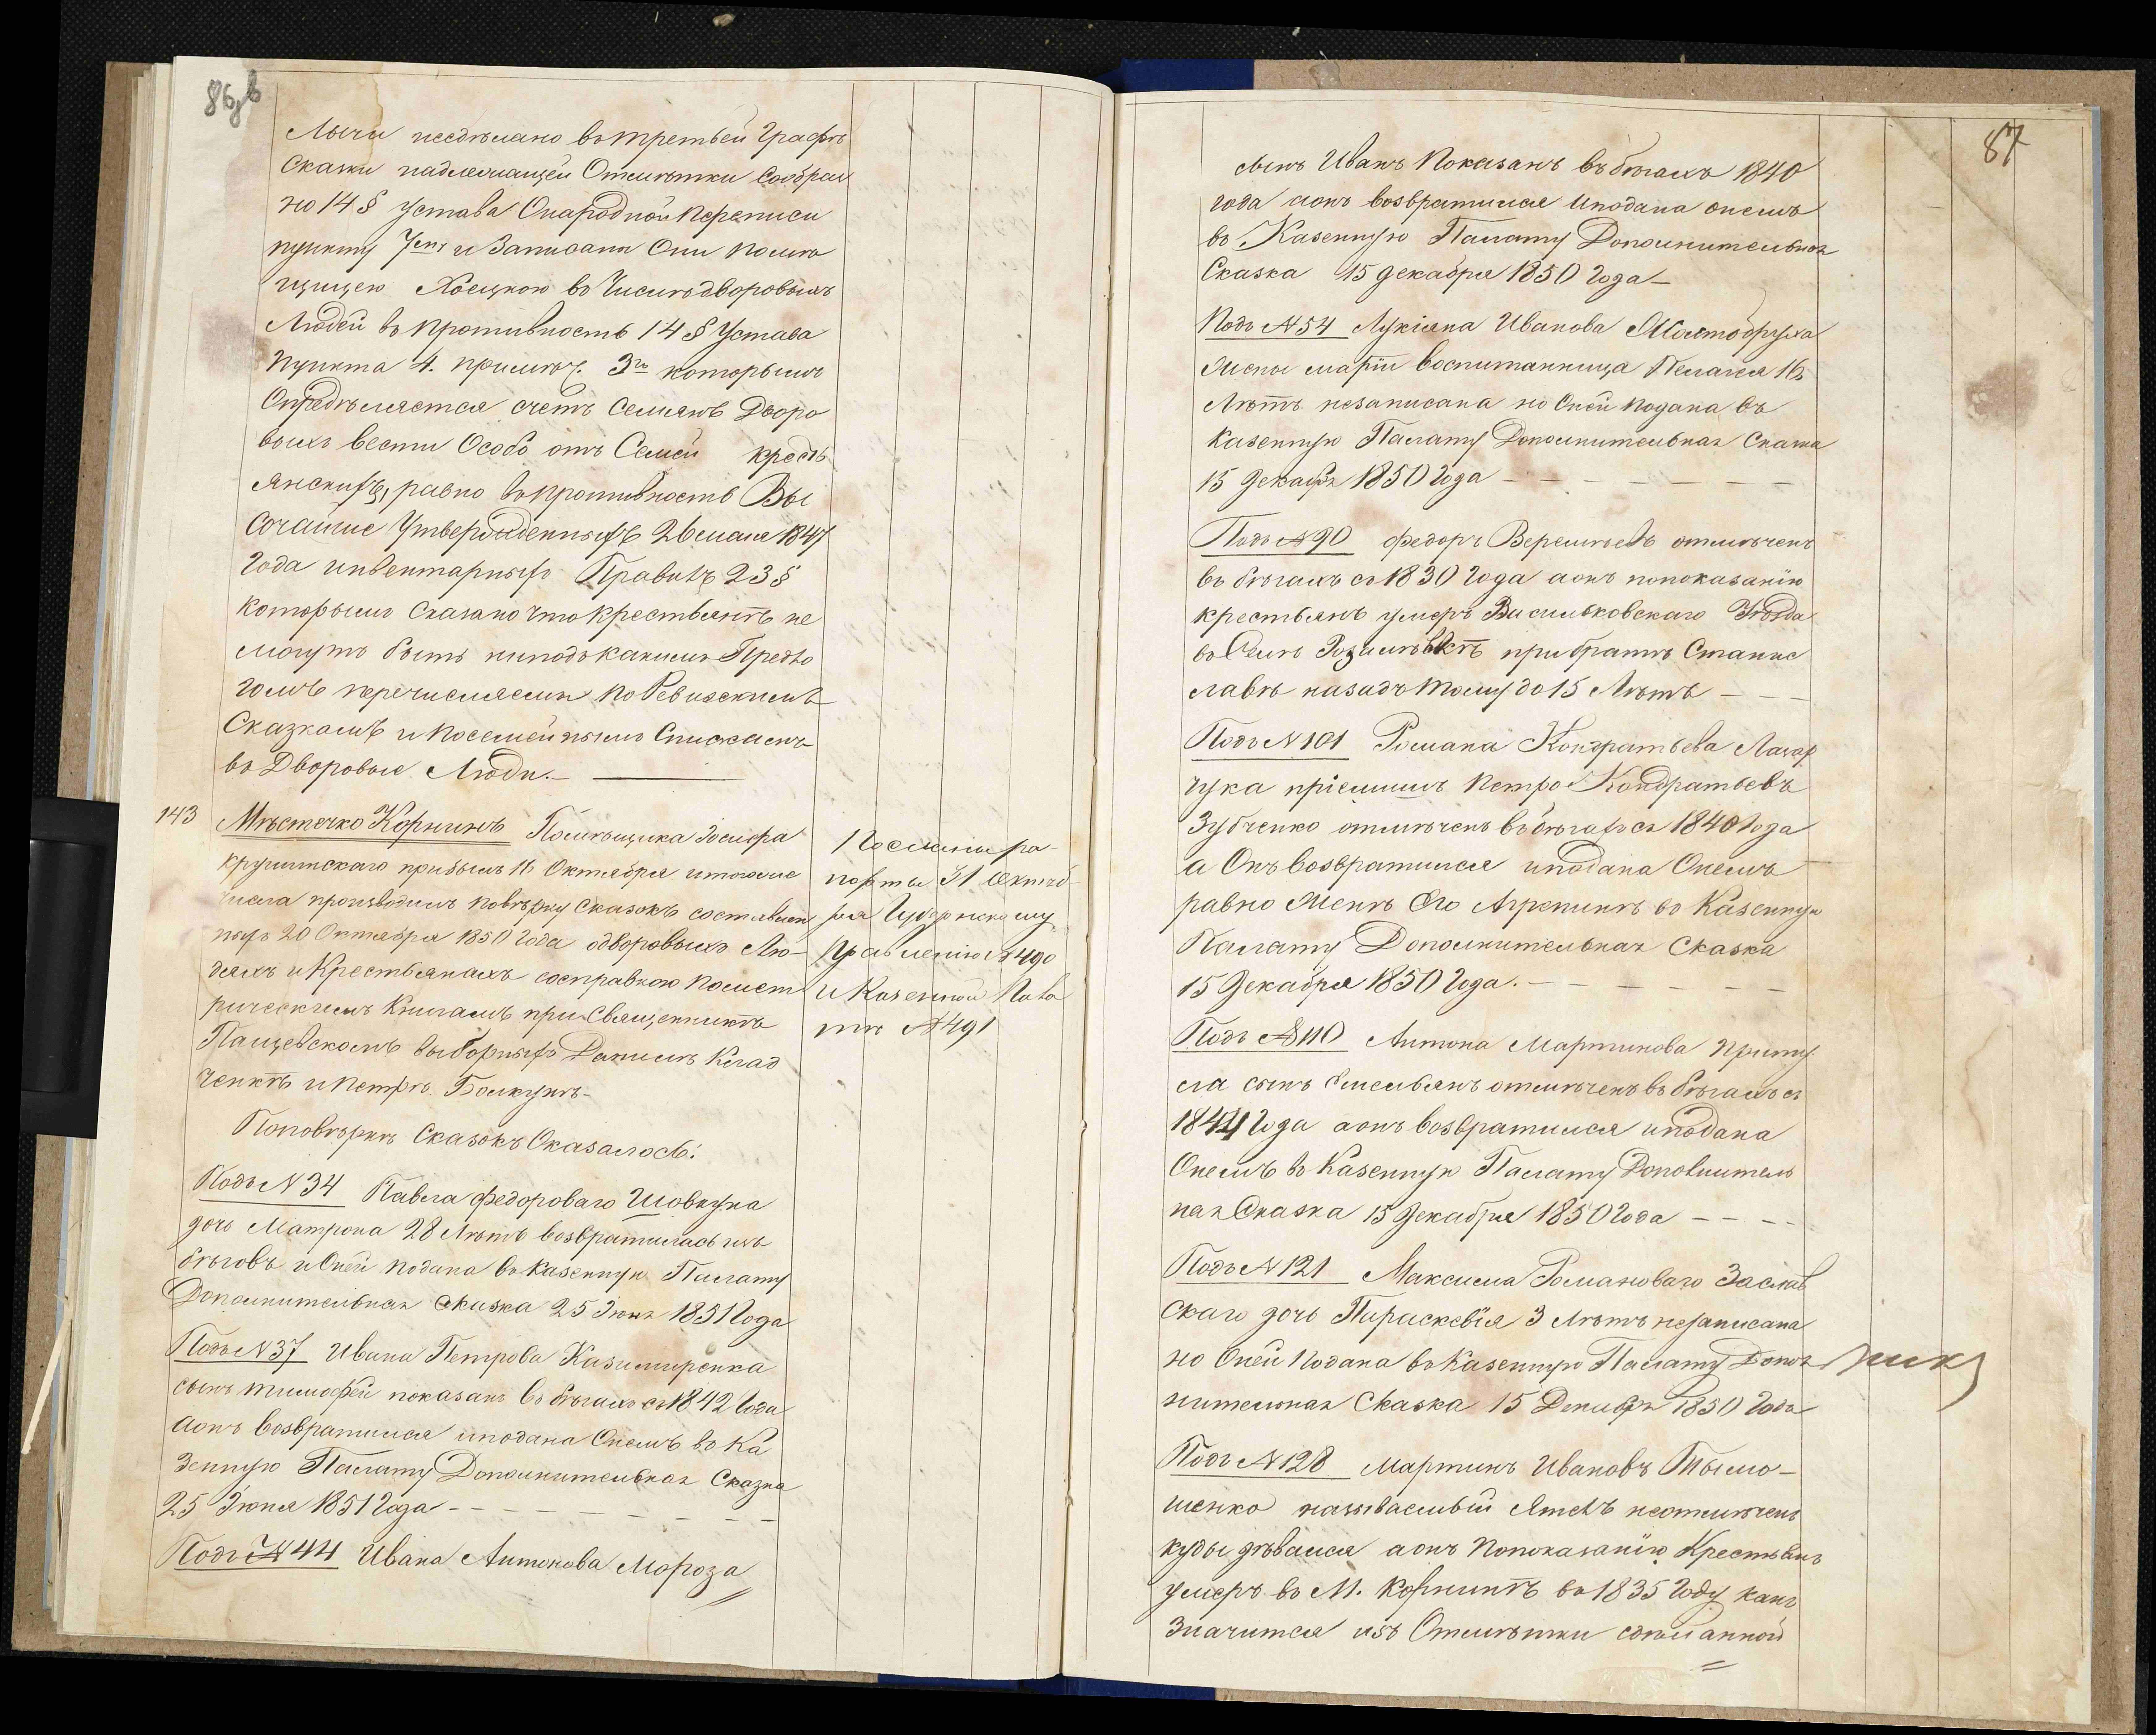 86,b
Лычи несделано въ третьей Графѣ
Сказки надлежащей Отмѣтки Сообраз
но 14 § Устава Онародной переписи
пункту 7му и Записаны Они помѣ
щицею Хоецкою въ Числѣ дворовыхъ
Людей въ противность 14 § Устава
пункта 4. примѣч. 3го которымъ
Определяется счетъ Семянъ Дворо
выхъ вести Особо отъ Семей кресть
янскихъ, равно впротивность Вы
сочайше Утвержденныхъ 26 мая 1847
Года инвентарныхъ Правилъ 23 §
которымъ Сказано что крестьянъ не
могутъ быть ниподъ какимъ Предло
гомъ перечисляемы по Ревизскимъ
Сказкамъ и посемейнымъ Спискамъ
въ Дворовые Люди. —
143 Мѣстечко Корнинъ Помѣщика Іосифа
прибылъ 16 Октября итогоже
числа производилъ повѣрку Сказокъ составлен
ныхъ 20 Октября 1850 Года одворовыхъ Лю-
дяхъ и Крестьянахъ сосправкою помет
рическимъ Книгамъ при Священникѣ
Пащевскомъ выборныхъ Данилѣ Клад
ченкѣ и Петрѣ Болкунѣ -
1 Посланы ра-
порты 31 Октяб-
ря Губернскому
Правлению №490
и Казенной Пала
тѣ №491
Поповѣркѣ Сказокъ Оказалось:
Подъ №34 Павла Федороваго Шовкуна
дочь Матрона 28 Лѣтъ возвратилась изъ
бѣговъ и Оней подана въ казенную Палату
Дополнительная сказка 25 Іюня 1851 Года
Подъ №37 Ивана Петрова Казимиренка
сынъ тимофей показанъ въ бѣгахъ съ 1842 Года
аонъ возвратился иподана Онемъ въ Ка
зенную Палату Дополнительная Сказка
25 Іюня 1851 Года - - - - - - -
Подъ №44 Ивана Антонова Мороза
87
сынъ Иванъ Показанъ въ бѣгахъ 1840
года аонъ возвратился иподана онемъ
въ Казенную Палату Дополнительная
Сказка 15 декабря 1850 Года —
Подъ №54 Лукіяна Иванова
жены маріи воспитанница Пелагея 16
Лѣтъ незаписана но Оней подана въ
казенную Палату Дополнительная Сказка
15 декабря 1850 Года - - - - - - -
Подъ №90 федоръ Веремѣевъ отмѣченъ
въ бѣгахъ съ 1830 Года аонъ попоказанію
крестьянъ умеръ Васильковскаго Уѣзда
въ Селѣ при братѣ Станис
лавѣ назадъ тому до 15 Лѣтъ - - -
Подъ №101 Романа Кондратьева Лазар
чука пріемышъ Петро Кондратьевъ
Зубченко отмѣченъ въ бѣгахъ съ 1840 Года
а Онъ возвратился иподана Онемъ
равно Женѣ Его Агрепинѣ въ Казенную
Палату Дополнительная Сказка
15 Декабря 1850 Года. - - - - - -
Подъ №110 Антона Мартинова Приту
ла сынъ Емельянъ отмѣченъ въ бѣгахъ съ
1844 Года аонъ возвратился иподана
Онемъ въ Казенную Палату Дополнитель
ная Сказка 15 Декабря 1850 Года - - - -
Подъ №121 Максима Романоваго Заслав
скаго дочь Параскевія 3 Лѣтъ незаписана
но Оней Подана въ Казенную Палату Допол
нительная Сказка 15 Декабря 1850 Года
Подъ №128 Мартинъ Ивановъ Тымо-
шенко называемый Ятелъ неотмѣченъ
куды дѣвался аонъ Попоказанію Крестьянъ
умеръ въ М. Корнинѣ въ 1835 Году какъ
Значится изъ Отмѣтки сдѣланной